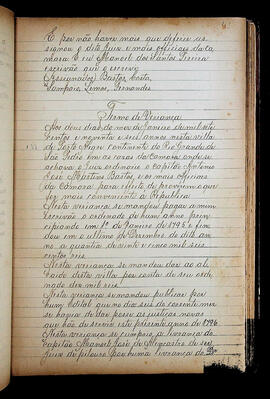 E por não haver mais que deferir as
signou o dito Juiz e mais officiaes da Ca
mara e eu Manoel dos Santos Pereira
escrivão que o escrevi
(Assignados) Bastos, Costa,
Sampaio, Lemos, Fernandes
Termo de Vereança
Aos dous dias do mez de Janeiro de mil sete
centos e noventa e seis annos nesta villa
de Porto Alegre continente do Rio Grande de
São Pedro em as casas da Camara onde se
achava o Juiz ordinario o capitão Antonio
José Martins Bastos, e os mais officiaes
da Camara para effeito de proverem o que
for mais conveniente a Republica
Nesta vereança se mandou pagar a mim
escrivão o ordenado de hum anno prin
cipiando em 1º de Janeiro de 1795 e fin
dou em o ultimo de Dezembro do dito an
no a quantia de vinte e cinco mil seis
centos reis
Nesta vereança se mandou dar ao al
caide desta villa por conta de seu orde
nado dez mil reis
Nesta vereança se mandou publicar por
hum Edital que no dia seis do corrente mez
se havia de dar posse as justiças novas
que hão de servir este presente anno de 1796
Nesta vereança se cumprio a vereança do
capitão Manoel José de
Juiz de pelouro por huma vereança do Dr